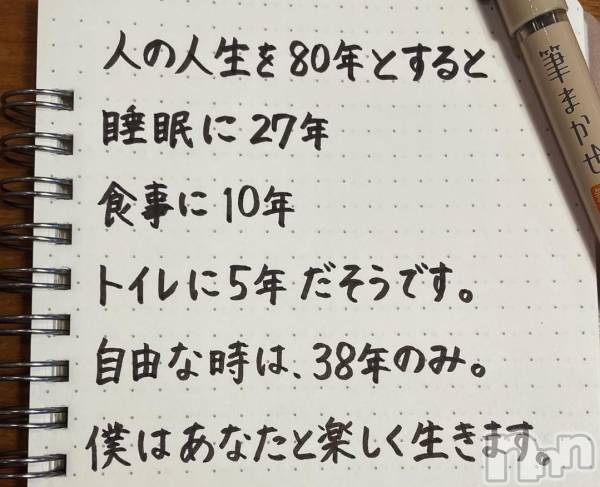 人の人生を80年とすると
睡眠に27年
食事に10年
トイレに5年だそうです。
自由な時は、38年のみ。
僕はあなたと楽しく生きます。
筆まかせ